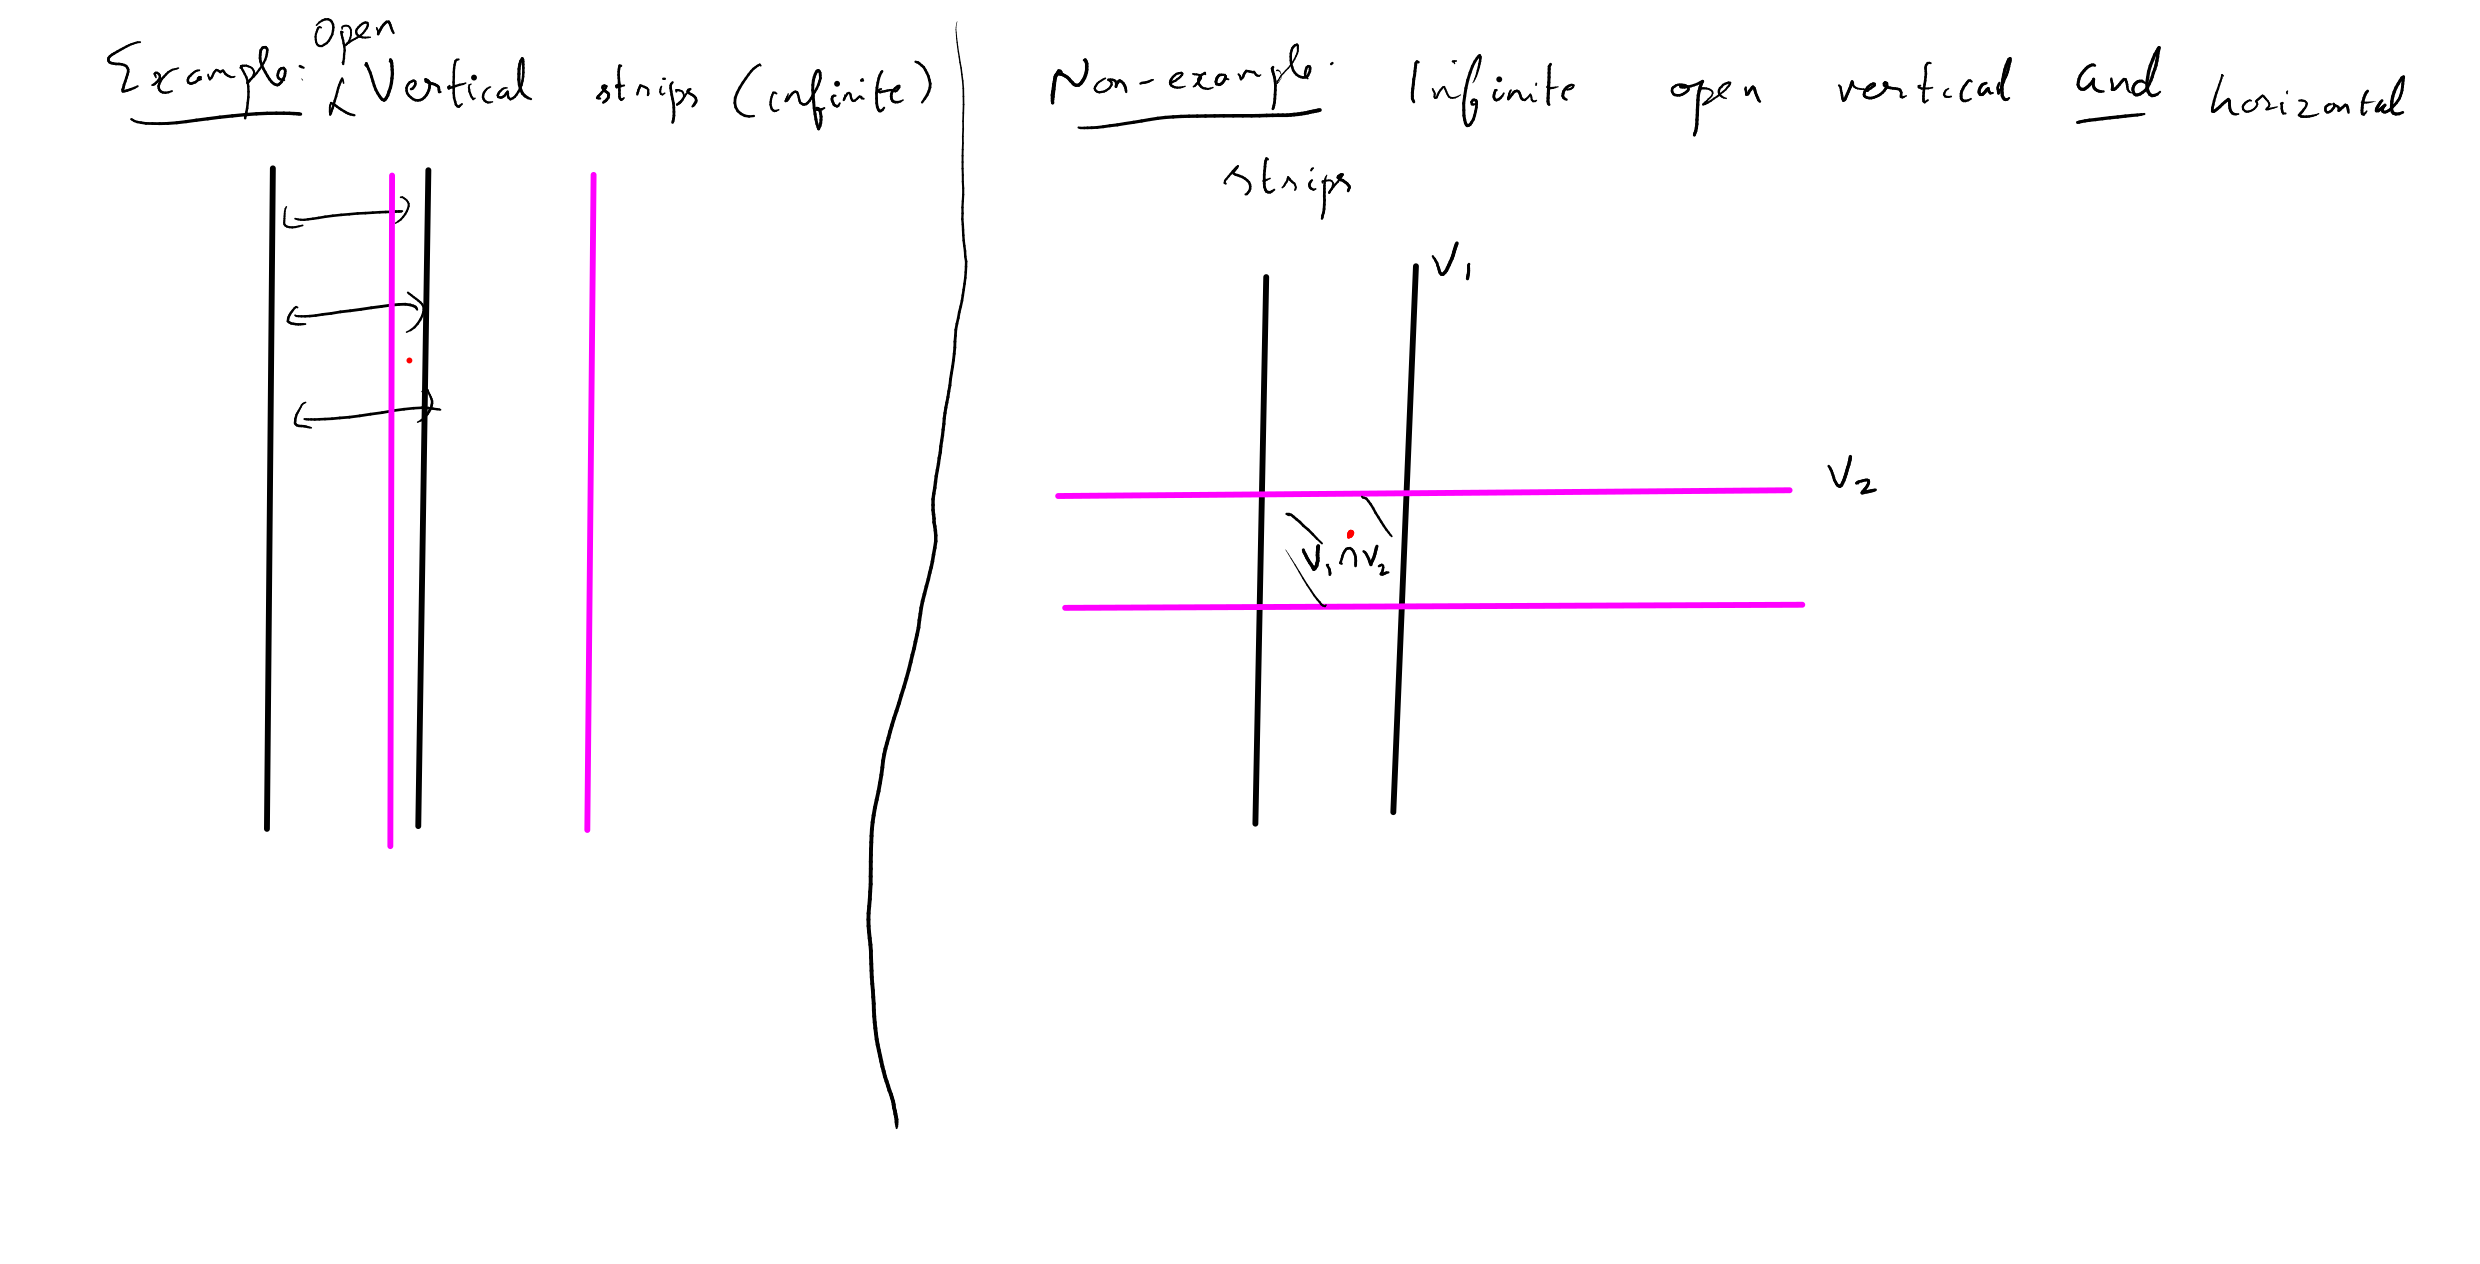 Example: open Vertical strips (infinite)
Non-example: Infinite open vertical and horizontal
strips
V₁
V₂
V₁ ∩ V₂